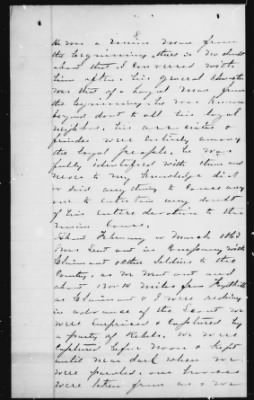 He was a Union man from
the beginning, there is no doubt
about that I conversed with
him often. his general character
was that of a loyal man from
the beginning, he was known
beyond doubt to all his loyal
neighbors, his associates &
friends were entirely among
the loyal people, he was
fully identified with them and
never to my knowledge did
or said any thing to cause any
one to entertain any doubt
of his entire devotion to the
Union Cause.
About February or March 1863
was sent out in Company with
Claimant & Other Soldiers to the
Country, as we went out and
about 12 or 14 miles from
as Claimant & I were riding
in advance of the Scout we
were surprised & Captured by
a party of Rebels. we were
Captured before noon & kept
until near dark when we
were paroled. our horses
were taken from us & we